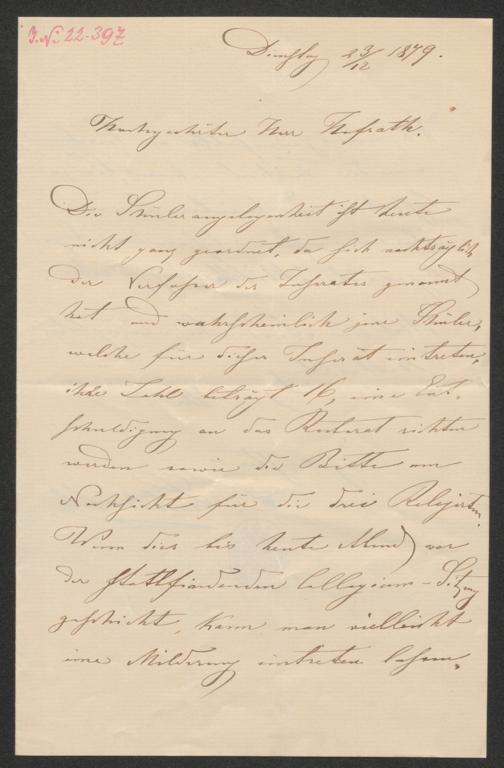 J. N. 22.397
Dienstag 23/12 1879.
Hochgeehrter Herr Hofrath.
Die Schülerangelegenheit ist heute
nicht ganz geordnet, da sich nachträglich
der Verfasser des Inserates genannt
hat und wahrscheinlich jene Schüler,
welche für dieses Inserat eintreten,
ihre Zahl beträgt 16, eine Ent-
schuldigung an das Rectorat richten
werden sowie die Bitte um
Nachsicht für die drei Relegirten.
Wenn dies bis heute Abend vor
der stattfindenden Collegium-Sitzung
geschieht, kann man vielleicht
eine Milderung eintreten lassen.